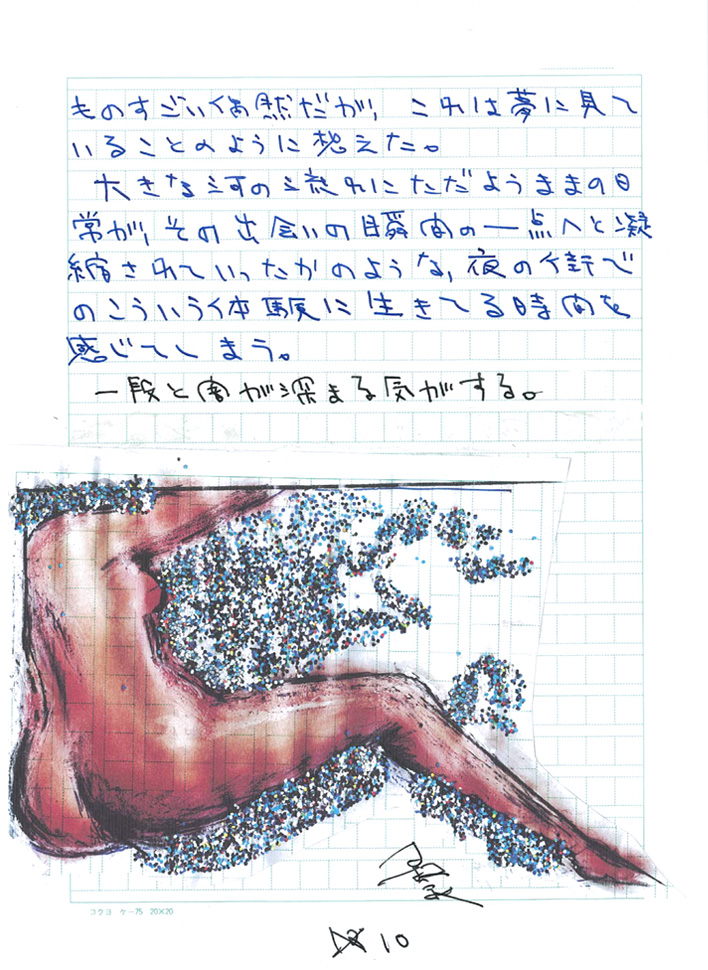 ものすごい偶然だが、これは夢に見て
いることのように想えた。
大きな河の流れにただようままの日
常が、その出会いの瞬間の一点へと凝
縮されていったかのような、夜の街で
のこういう体験に生きてる時間を
感じてしまう。
一段と闇が深まる気がする。
コクヨ ケー75 20×20
10